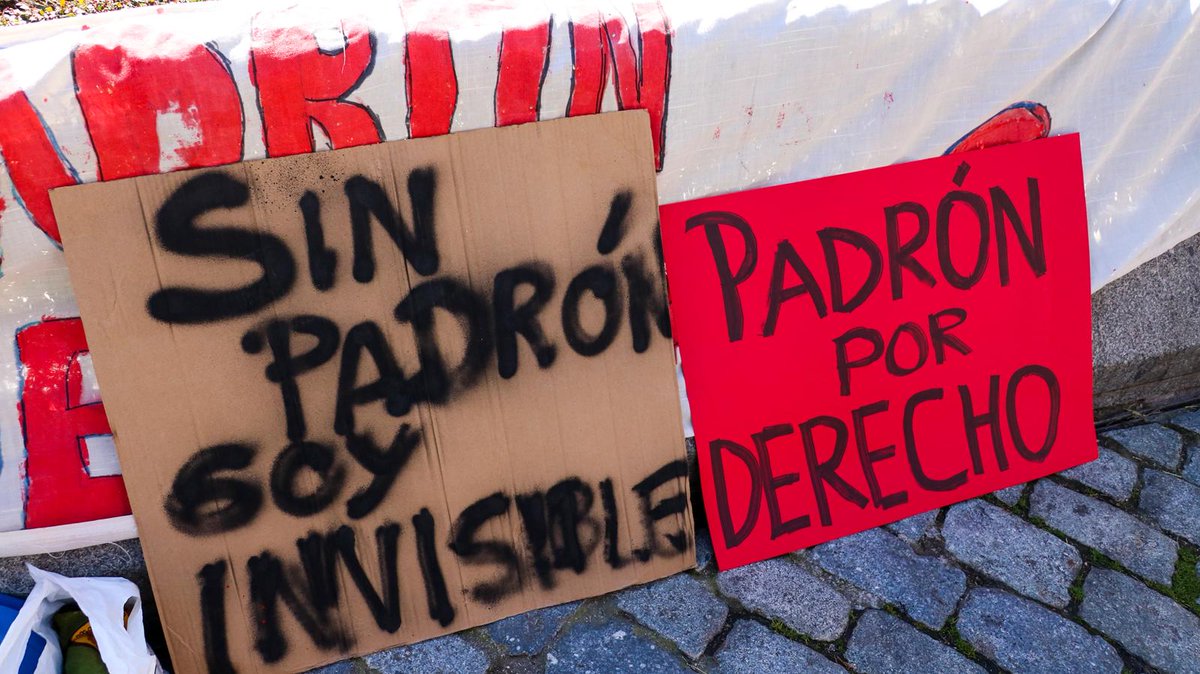 SIN
PADRÓN
SOY
INVISIBLE
PADRÓN
POR
DERECHO